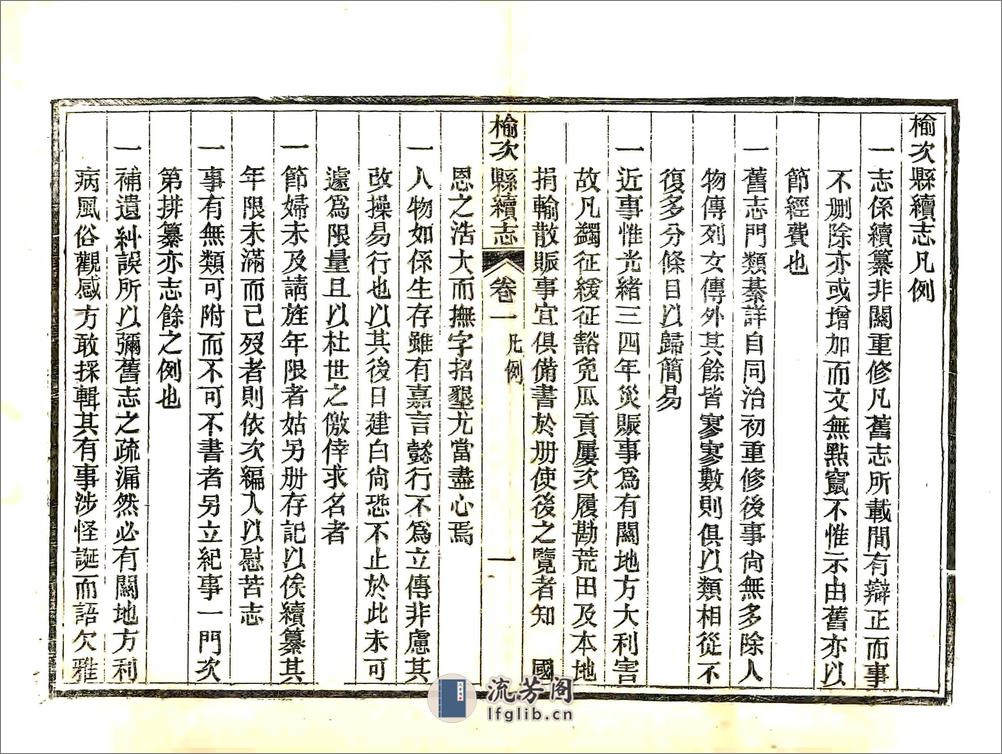 榆次縣續志凡例
一志係續纂非關重修凡舊志所載間有辯正而事
不刪除亦或增加而文無點竄不惟示由舊亦以
節經費也
一舊志門類綦詳自同治初重修後事尙無多除人
物傳列女傳外其餘皆寥寥數則俱以類相從不
復多分條目以歸簡易
一近事惟光緖三四年災賑事爲有關地方大利害
故凡蠲征緩征豁免瓜貢屢次履勘荒田及本地
捐輸散賑事宜俱備書於册使後之覽者知　國
榆次縣續志　卷一　凡例　一
恩之浩大而撫字招墾尤當盡心焉
一人物如係生存雖有嘉言懿行不爲立傳非慮其
改操易行也以其後日建白尙恐不止於此未可
遽爲限量且以杜世之儌倖求名者
一節婦未及請旌年限者姑另册存記以俟續纂其
年限未滿而已歿者則依次編入以慰苦志
一事有無類可附而不可不書者另立紀事一門次
第排纂亦志餘之例也
一補遺糾誤所以彌舊志之疏漏然必有關地方利
病風俗觀感方敢採輯其有事涉怪誕而語欠雅
流芳阁
lfglib.cn